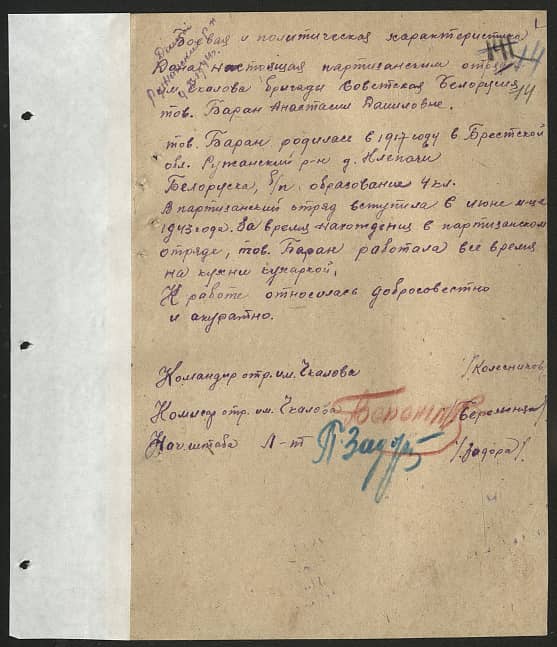 1
Боевая и политическая характеристика
141 14
Дана настоящая партизанским отряд
им Чкалова бригады Советская Белорусия
14
тов. Баран Анастасии Даниловне.
тов. Баран родилась в 1917 году в Брестской
обл. Ружанский р-н д.
Белоруска, б/п образование 4 кл.
В партизанский отряд вступила в июне м-це
1943 года. За время нахождения в партизанском
отряде, тов. Баран работала всё время
на кухни кухаркой.
К работе относилась добросовестно
и акуратно.
Командир отр. им. Чкалова /Колесников
Комисар отр. им. Чкалова
Нач. штаба Л-т П. Задор /Задора/